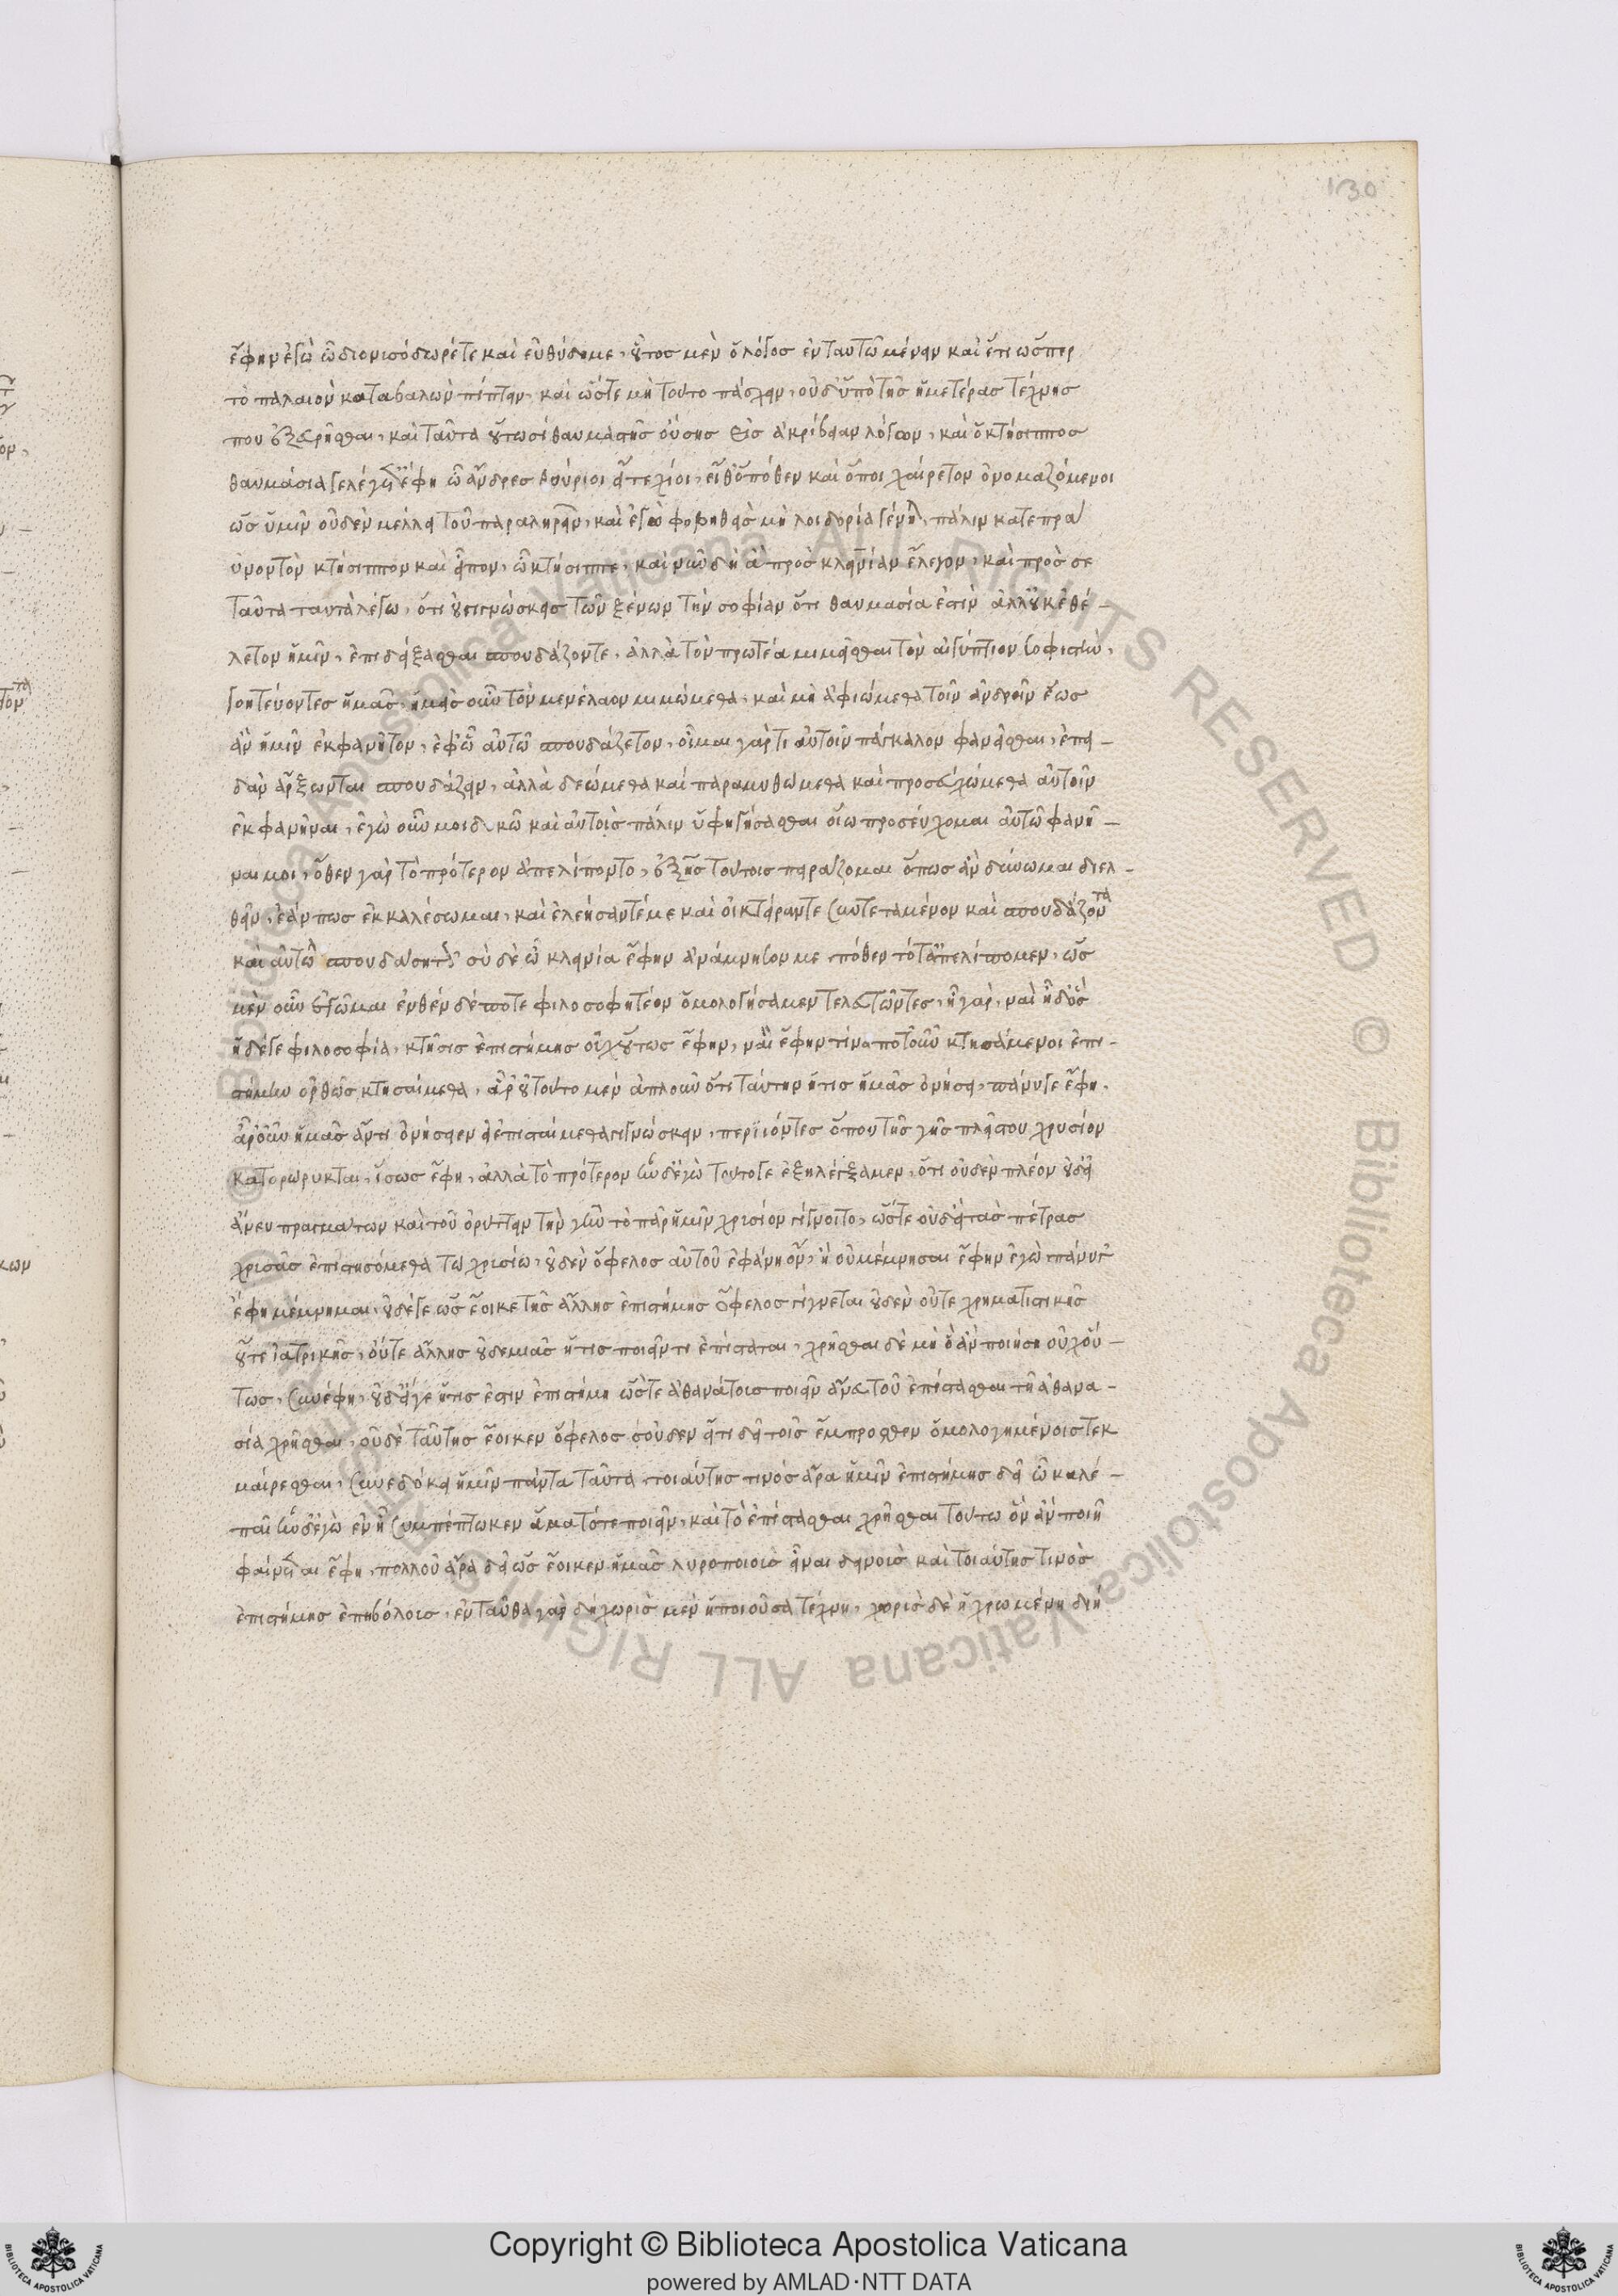 130
ἔφην ἐγὼ ὦ διονισόδωρέ τε καὶ εὐθύδημε, οὗτος μὲν ὁ λόγος ἐν ταυτῷ μένειν καὶ ἔτι ὥσπερ
τὸ παλαιὸν καταβαλὼν πίπτειν, καὶ ὥστε μὴ τοῦτο πάσχειν, οὐδ' ὑπὸ τῆς ἡμετέρας τέχνης
που ἐξευρῆσθαι, καὶ ταῦτα οὑτωσὶ θαυμαστῆς οὔσης εἰς ἀκρίβειαν λόγων, καὶ ὁ κτήσιππος
θαυμάσιά γε λέγετ' ἔφη ὦ ἄνδρες θούριοι εἴτε χίοι, εἴθ' ὁπόθεν καὶ ὅποι χαίρετον ὀνομαζόμενοι
ὡς ὑμῖν οὐδὲν μέλλει τοῦ παραληρεῖν, καὶ ἐγὼ φοβηθεὶς μὴ λοιδορία γένηται, πάλιν κατεπρά
ϋνον τὸν κτήσιππον καὶ εἶπον, ὦ κτήσιππε, καὶ νῦν δὴ ἃ πρὸς κλεινίαν ἔλεγον, καὶ πρὸς σε
ταῦτα ταυτὰ λέγω, ὅτι οὐ γιγνώσκεις τῶν ξένων τὴν σοφίαν ὅτι θαυμασία ἐστὶν ἀλλ' οὐκ ἐθέ-
λετον ἡμῖν, ἐπιδείξασθαι σπουδάζοντε, ἀλλὰ τὸν πρωτέα μιμεῖσθαι τὸν αἰγύπτιον σοφιστὴν,
γοητεύοντες ἡμᾶς, ἡμεῖς οὖν τὸν μενέλαον μιμώμεθα, καὶ μὴ ἀφιώμεθα τοῖν ἀνδροῖν ἕως
ἂν ἡμῖν ἐκφανῆτον, ἐφ' ᾧ αὐτῶ σπουδάζετον, οἶμαι γάρ τι αὐτοῖν πάγκαλον φανεῖσθαι, ἐπει-
δὰν ἄρξωνται σπουδάζειν, ἀλλὰ δεώμεθα καὶ παραμυθώμεθα καὶ προσευχώμεθα αὐτοῖν
ἐκφανῆναι, ἐγὼ οὖν μοι δοκῶ καὶ αὐτοῖς πάλιν ὑφηγήσασθαι οἵω προσεύχομαι αὐτῶ φανῆ-
ναι μοι, ὅθεν γὰρ τὸ πρότερον ἀπελίποντο, ἑξῆς τούτοις πειράζομαι ὅπως ἂν δύνωμαι διελ-
θεῖν, ἐάν πως ἐκκαλέσωμαι, καὶ ἐλεήσαντέ με καὶ οἰκτείραντε συντεταμένον καὶ σπουδάζοντα
καὶ αὐτὼ σπουδάσητον, σὺ δὲ ὦ κλεινία ἔφην ἀνάμνησόν με πόθεν τότ' ἀπελίπομεν, ὡς
μὲν οὖν ἐγῶμαι ἐνθένδε ποτε φιλοσοφητέον ὁμολογήσαμεν τελευτῶντες, ἦ γάρ, ναὶ ἦ δ' ὃς
ἡ δέ γε φιλοσοφία, κτῆσις ἐπιστήμης οὐχ οὕτως ἔφην, ναὶ ἔφην τίνα ποτ' οὖν κτησάμενοι ἐπι-
στήμην ὀρθῶς κτησαίμεθα, ἆρ' οὐ τοῦτο μὲν ἁπλοῦν ὅτι ταύτην ἥτις ἡμᾶς ὀνήσει, πάνυ γε ἔφη,
ἆρ' οὖν ἡμᾶς ἄν τι ὀνήσειεν εἰ ἐπισταίμεθα γιγνώσκειν, περιϊόντες ὅπου τῆς γῆς πλεῖστον χρυσίον
κατορώρυκται, ἴσως ἔφη, ἀλλὰ τὸ πρότερον ἦν δ' ἐγὼ τοῦτό γε ἐξηλέγξαμεν, ὅτι οὐδὲν πλέον οὐδ' εἰ
ἄνευ πραγμάτων καὶ τοῦ ὀρύττειν τὴν γῆν τὸ πᾶν ἡμῖν χρισίον γίγνοιτο, ὥστε οὐδ' εἰ τὰς πέτρας
χρισᾶς ἐπιστησόμεθα τῶ χρισίω, οὐδὲν ὄφελος αὐτοῦ ἐφάνη ὄν, ἢ οὐ μέμνησαι ἔφην ἐγὼ πάνυ γ'
ἔφη μέμνημαι, οὐδέ γε ὡς ἔοικε τῆς ἄλλης ἐπιστήμης ὄφελος γίγνεται οὐδὲν οὔτε χρηματιστικῆς
οὔτε ἰατρικῆς, οὔτε ἄλλης οὐδεμιᾶς ἥτις ποιεῖν τι ἐπίσταται, χρῆσθαι δὲ μὴ ὃ ἂν ποιήση οὐχ οὕ-
τως, συνέφη, οὐδ' εἴ γε ἥτις ἐστιν ἐπιστήμη ὥστε ἀθανάτοις ποιεῖν ἄνευ τοῦ ἐπίστασθαι τῆ ἀθανα-
σία χρῆσθαι, οὐδὲ ταύτης ἔοικεν ὄφελος οὐδεν εἴ τι δεῖ τοῖς ἔμπροσθεν ὁμολογημένοις τεκ
μαίρεσθαι, συνεδόκει ἡμῖν πάντα ταῦτα τοιαύτης τινός ἄρα ἡμῖν ἐπιστήμης δεῖ ὦ καλέ-
παῖ ἦν δ' ἐγὼ ἐν ᾗ συμπέπτωκεν ἅμα τό τε ποιεῖν, καὶ τὸ ἐπίστασθαι χρῆσθαι τούτω ὃν ἂν ποιῆ
φαίνεται ἔφη, πολλοῦ ἄρα δεῖ ὡς ἔοικεν ἡμᾶς λυροποιοὶς εἶναι δεινοὶς καὶ τοιαύτης τινὸς
ἐπιστήμης ἐπηβόλοις, ἐνταῦθα γὰρ δὴ χωρὶς μὲν ἡ ποιοῦσα τέχνη, χωρὶς δὲ ἡ χρωμένη διῄ
Copyright © Biblioteca Apostolica Vaticana
powered by AMLAD·NTT DATA